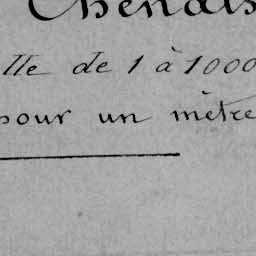 lle de 1 à 1000
pour un mètre